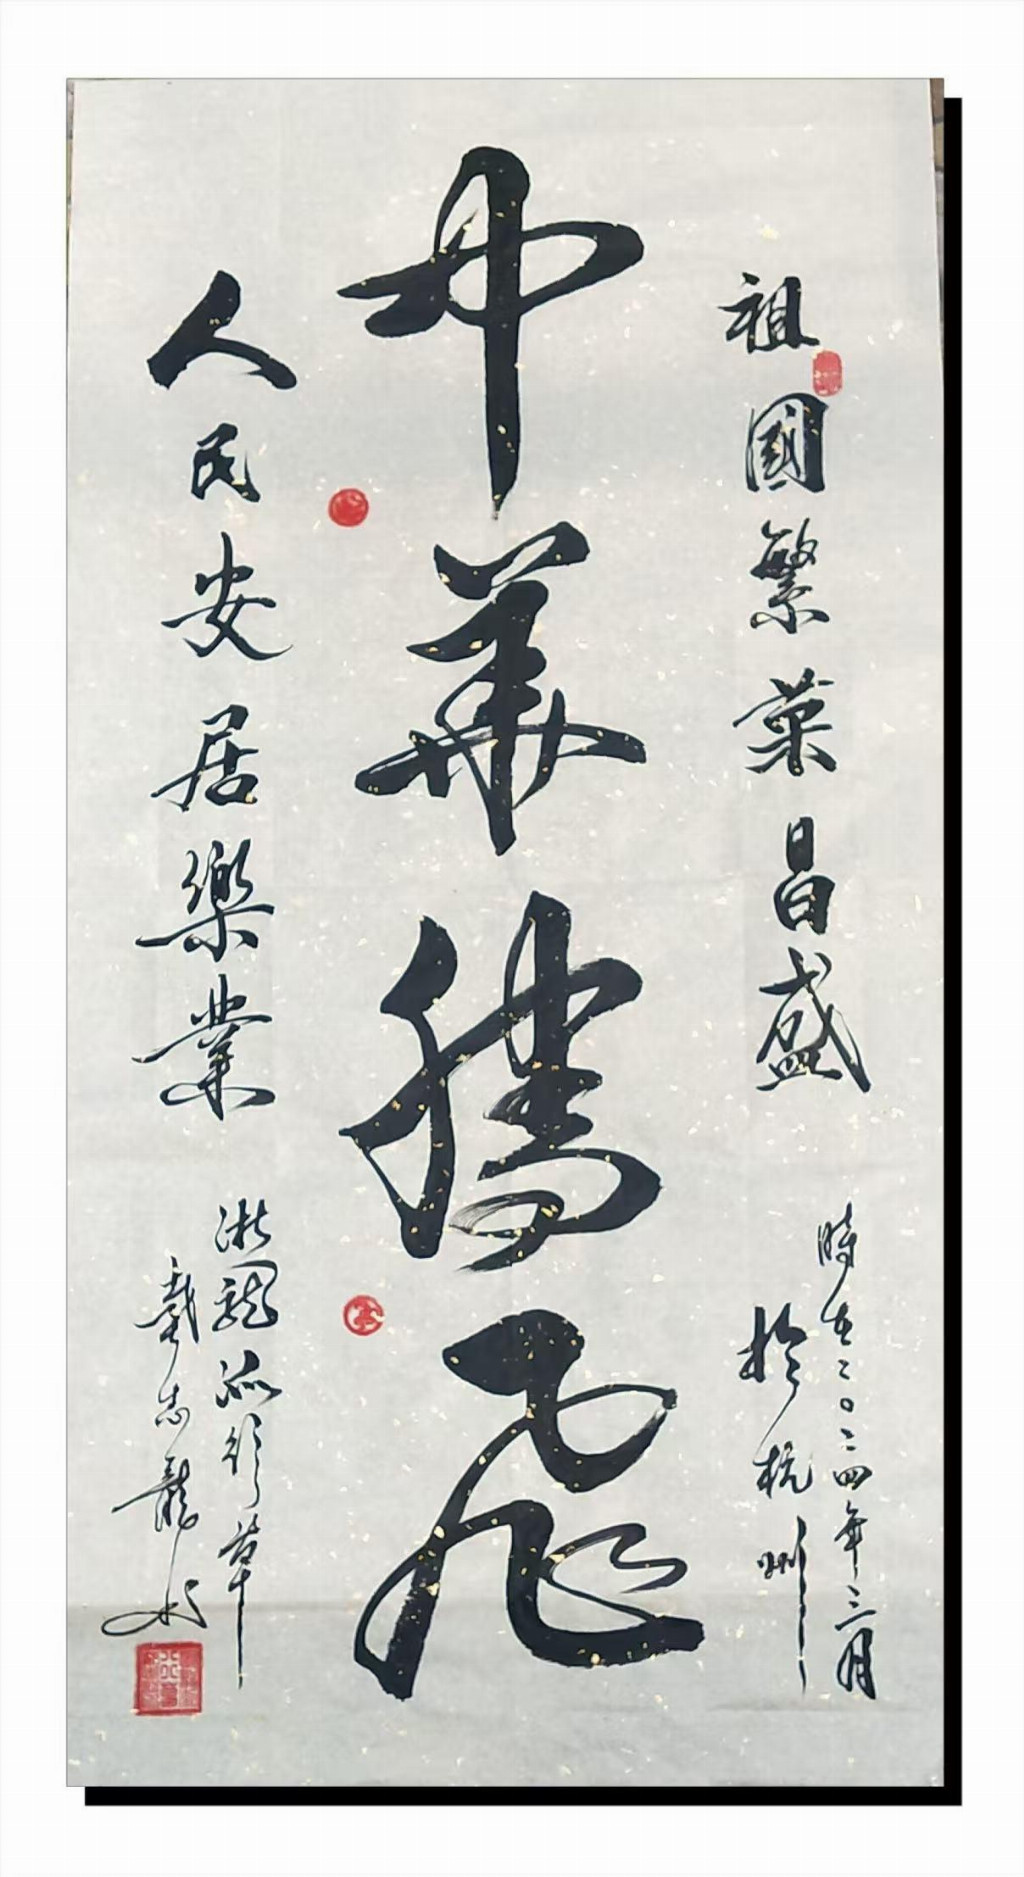 祖國繁荣昌盛
時在二〇二四年三月
於杭州
中華騰飛
人民安居樂業
行草
志龍书